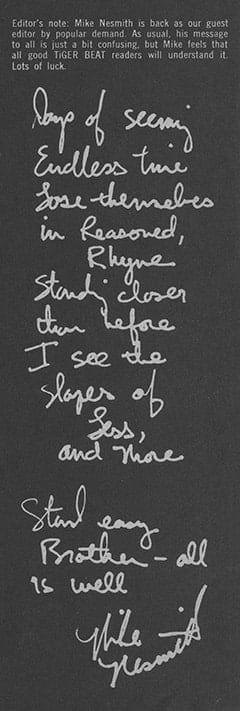 Editor's note: Mike Nesmith is back as our guest
editor by popular demand. As usual, his message
to all is just a bit confusing, but Mike feels that
all good TiGER BEAT readers will understand it.
Lots of luck.
Days of seeming
Endless time
Lose themselves
in Reasoned,
Rhyme
Standing closer
than before
I see the
slopes of
Less,
and More
Stand easy
Brother - all
is well
Mike
Nesmith